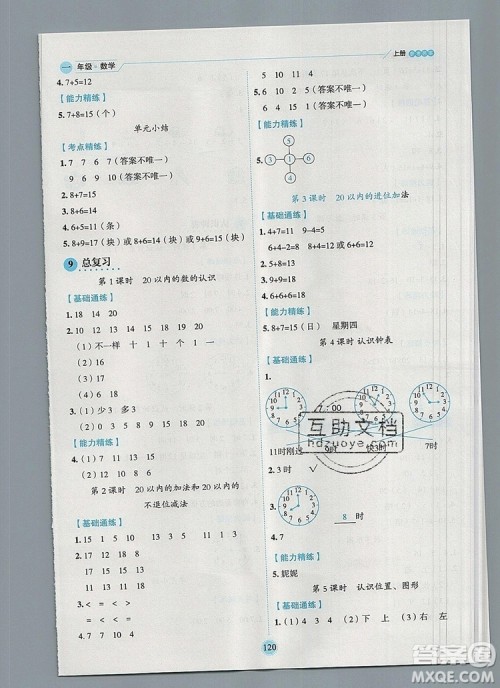 一 年级·数学
上册
4. 7+5=12
【能力精练】
5. 7+8=15(个)
单元小结
【考点精练】
1. 7 7 6 7(答案不唯一)
6 9 6 9(答案不唯一)
3. 8+7=15
4. 6+5=11(条)
5. 8+9=17(块)或8+6=14(块)或9+6=15(块)
9 总复习
第1课时 20以内的数的认识
【基础通练】
1. 18 14 20
2. 10 12 13 15 18 19 20
(1)不一样 1 1 1
(2)16
(3)17
(4)17 18
3. (1)少3 多3
【能力精练】
4. (1)6 4 (2)18 14 20
第2课时 20以内的加法和20以内的
不退位减法
【基础通练】
1. 15 1 5 10 13 5 11 3 1
2. 14 12 12 11
18 15 15 13
17 11 14 14
3. < = < =
> < > <
4. 7 9 14
5 10 11 4
5. 6 10 10 20(答案不唯一)
【能力精练】
5. 5 3 1 4 1
第3课时 20以内的进位加法
【基础通练】
1. 4+7=11 9-4=5
6+4-2=8 6+6=12(或3+9=12)
2. 8+7=15
3. 7+6=13
4. 6+6+6=18
【能力精练】
5. 8+7=15(日) 星期四
第4课时 认识钟表
【基础通练】
1.
7:00
互助文档
hdzuoye.com
11时刚过 9时 快3时
2. 3时 ✓
3.
8 时
4. 7
【能力精练】
5. 妮妮
第5课时 认识位置、图形
【基础通练】
1. (1)4 4 (2)下 上 (3)右 左
120
答案圈
MXQE.COM